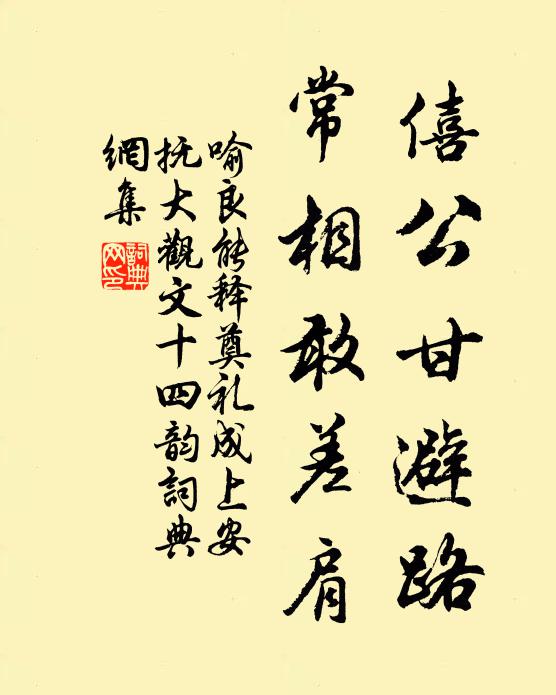 僖公甘避路
常相敢差肩
喻良能释奠礼成上安
抚大觀文十四韵詞典
網集
詞典网印